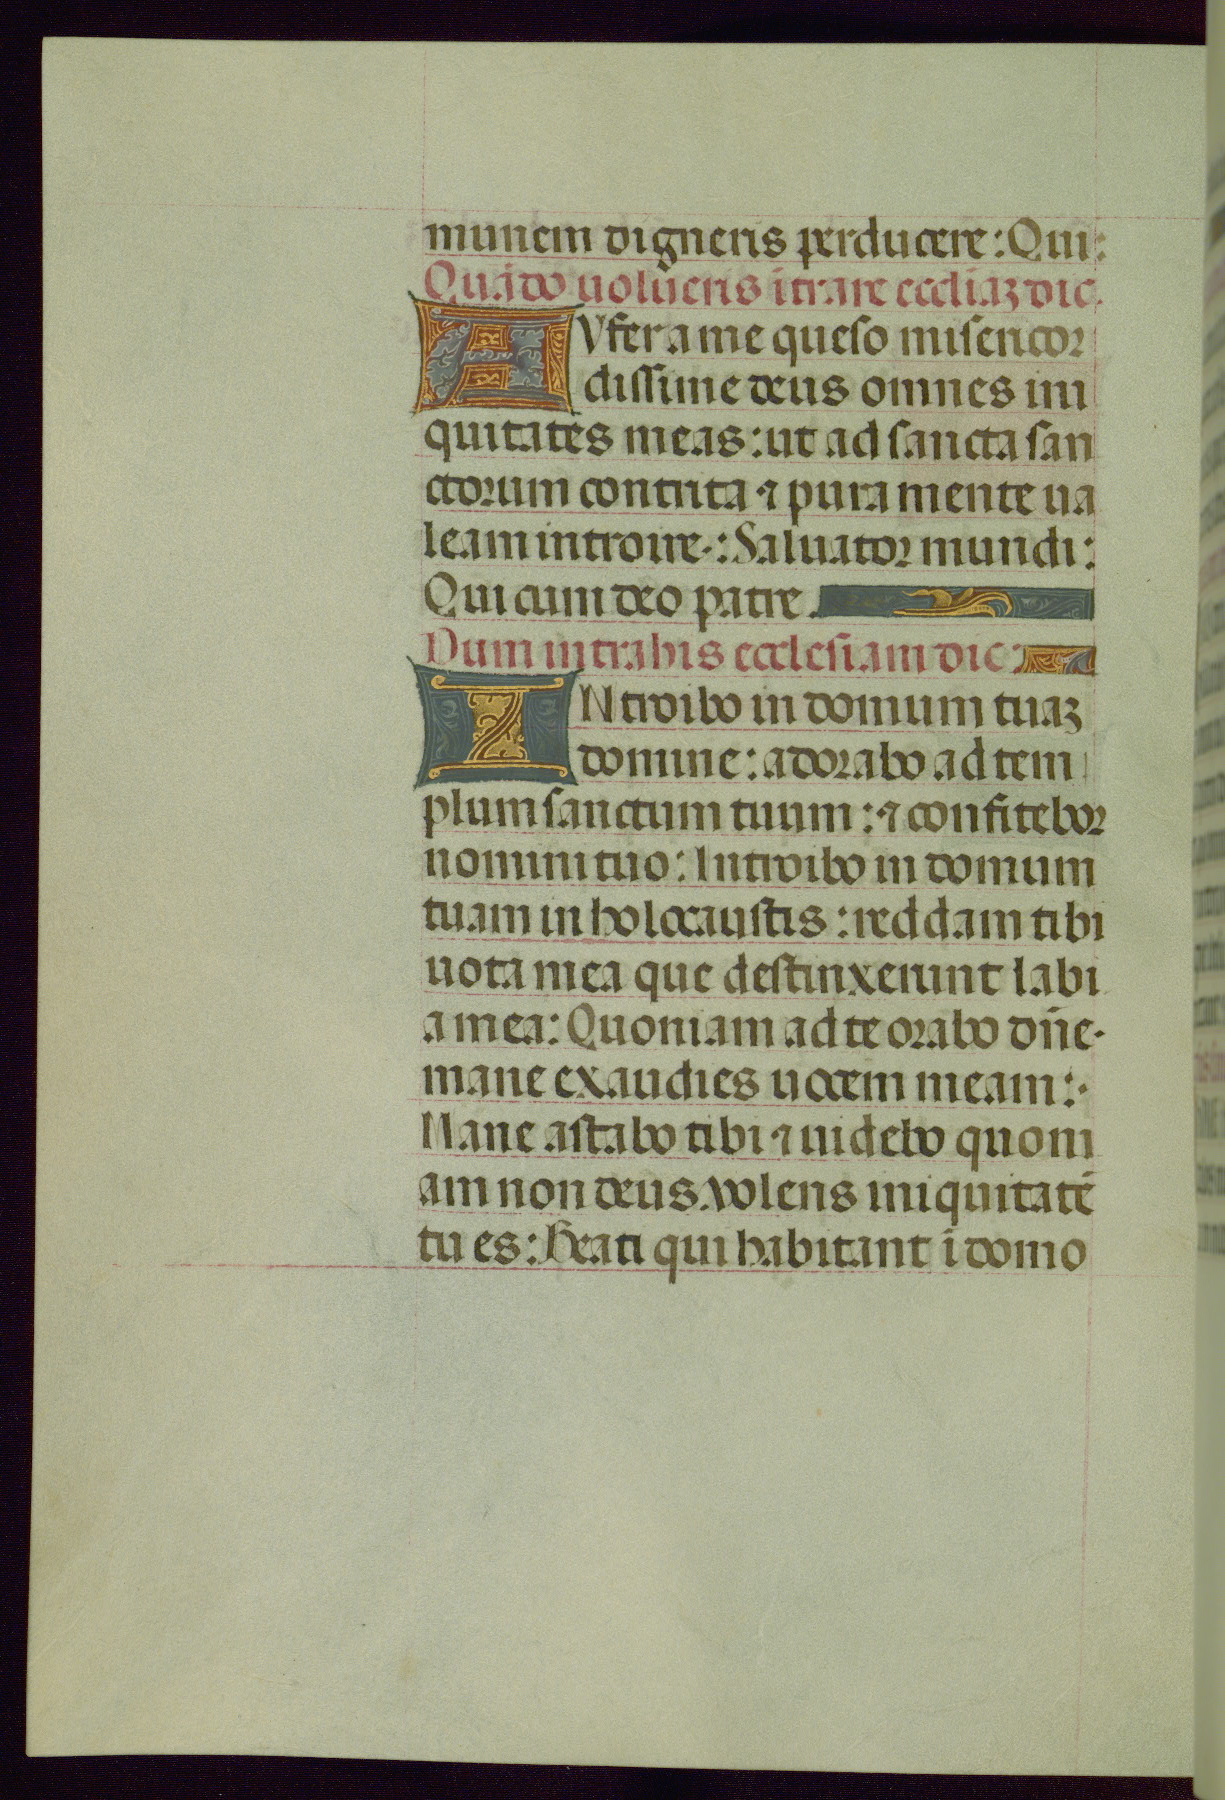 munem digneris perducere: Qui:
Quādo uolueris ītrare eccliaꝫ dic.
AVfer a me queso misericor
dissime deus omnes ini
quitates meas: ut ad sancta san
ctorum contrita ⁊ pura mente ua
leam introire·: Saluator mundi:
Qui cum deo patre.
Dum intrabis ecclesiam dic:
INtroibo in domum tuaꝫ
domine: adorabo ad tem
plum sanctum tuum: ⁊ confitebor
nomini tuo: Introibo in domum
tuam in holocaustis: reddam tibi
uota mea que destinxerunt labi
a mea: Quoniam ad te orabo dn̄e·
mane exaudies uocem meam:·
Mane astabo tibi ⁊ uidebo quoni
am non deus uolens iniquitatē
tu es: Beati qui habitant ī domo